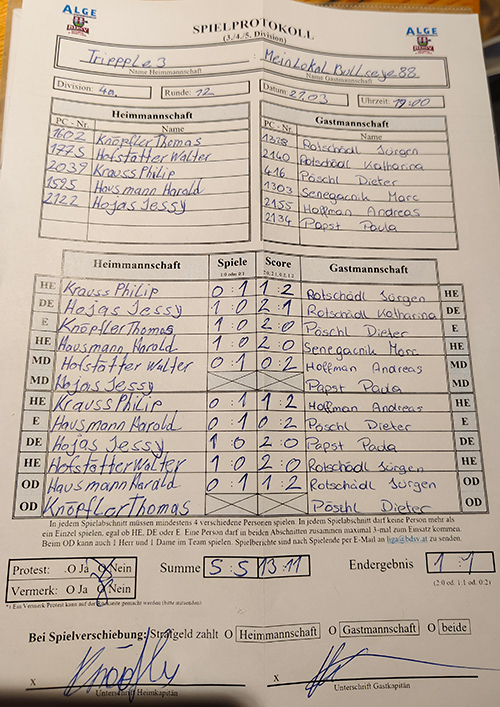 ALGE
BDSV
SPIELPROTOKOLL
(3./4./5. Division)
ALGE
BDSV
Triepple 3 : MeinLokal Bullseye 88
Name Heimmannschaft Name Gastmannschaft
Division: 4a Runde: 12 Datum: 27.03 Uhrzeit: 19:00
Heimmannschaft Gastmannschaft
PC - Nr. Name PC - Nr. Name
1602 Knöpfler Thomas 1328 Rotschädl Jürgen
1775 Hofstätter Walter 2140 Rotschädl Katharina
2039 Krauss Philip 416 Pöschl Dieter
1595 Hausmann Harald 1303 Senegacnik Marc
2122 Hojas Jessy 2155 Hoffman Andreas
2134 Papst Paula
Heimmannschaft Spiele Score Gastmannschaft
1:0 oder 0:1 2:0, 2:1, 0:2, 1:2
HE Krauss Philip 0:1 1:2 Rotschädl Jürgen HE
DE Hojas Jessy 1:0 2:1 Rotschädl Katharina DE
E Knöpfler Thomas 1:0 2:0 Pöschl Dieter E
HE Hausmann Harald 1:0 2:0 Senegacnik Marc HE
MD Hofstätter Walter 0:1 0:2 Hoffman Andreas MD
MD Hojas Jessy Papst Paula MD
HE Krauss Philip 0:1 1:2 Hoffman Andreas HE
E Hausmann Harald 0:1 0:2 Pöschl Dieter E
DE Hojas Jessy 1:0 2:0 Papst Paula DE
HE Hofstätter Walter 1:0 2:0 Rotschädl Jürgen HE
OD Hausmann Harald 0:1 1:2 Rotschädl Jürgen OD
OD Knöpfler Thomas Pöschl Dieter OD
In jedem Spielabschnitt müssen mindestens 4 verschiedene Personen spielen. In jedem Spielabschnitt darf keine Person mehr als
ein Einzel spielen, egal ob HE, DE oder E. Eine Person darf in beiden Abschnitten zusammen maximal 3-mal zum Einsatz kommen.
Beim OD kann auch 1 Herr und 1 Dame im Team spielen. Spielberichte sind nach Spielende per E-Mail an liga@bdsv.at zu senden.
Protest: O Ja Nein Summe 5:5 13:11 Endergebnis 1:1
Vermerk: O Ja Nein (2:0 od. 1:1 od. 0:2)
*) Ein Vermerk Protest kann auf der Rückseite gemacht werden (bitte anwenden)
Bei Spielverschiebung: Strafgeld zahlt O Heimmannschaft O Gastmannschaft O beide
X Knöpfly X
Unterschrift Heimkapitän Unterschrift Gastkapitän